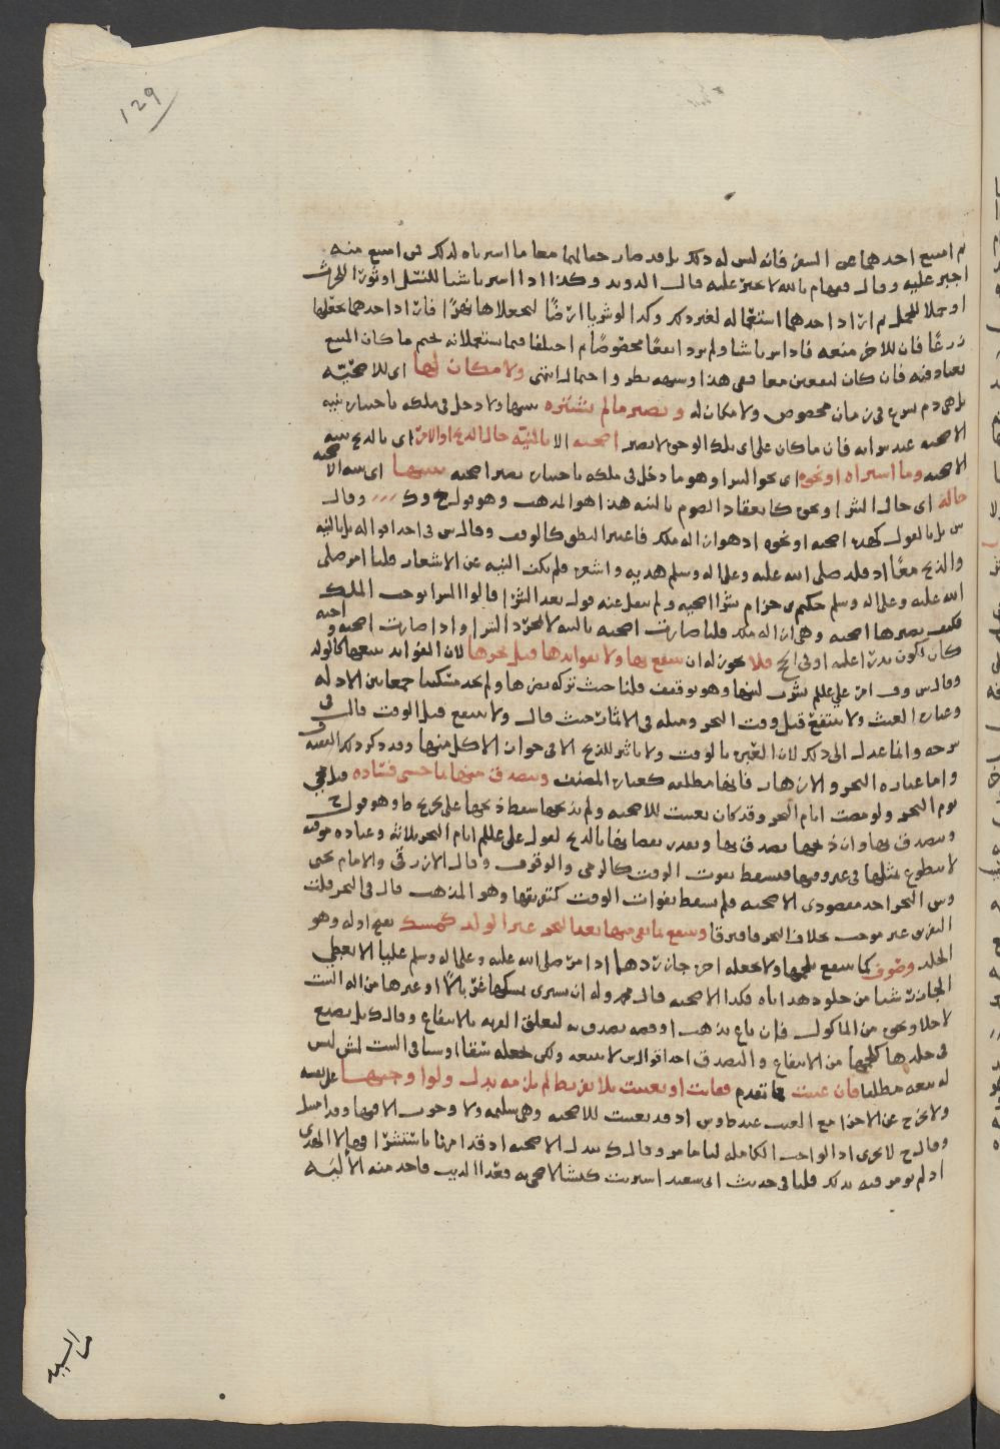 129
ثم امتنع احدهما عن السفر فانه ليس له ذلك بل قد صار حقا لهما معا ما اسرياه لذلك فمن امتنع منه
اجبر عليه وقال فيهما م بالله لا يجبر عليه قال الدويد وكذا اذا اشتريا شيا للنسل او ثورا للحرث
او جملا للحمل ثم اراد احدهما استعماله لغير ذلك وكذا لو شريا ارضا ليجعلاها فاراد احدهما يجعلها
زرعا فان للاخر منعه فاذا شريا شيا ولم يرد انفعا مخصوصا ثم اختلفا فيما يستعملانه
يعتاد فيه فان كان لنفعين معا ففي هذا وشبهه نظر واحتمال انتهى ولا مكان لها اي للاضحية
بل هي دم شرع في زمان مخصوص ولا مكان له وتصير مالم يشتره بنيتها ولا دخل في ملكه باختياره بنية
الاضحية عند شرائه فان ما كان على اي ذلك الوجه لا يصير اضحية الا بالنية حال الذبح او الامر اي بالذبح بنية
الاضحية وما اشتراه او نحوه اي نحو الشرا وهو ما دخل في ملكه باختياره تصير اضحية بنيتها اي بنية الاضحية
حاله اي حال الشرا ونحوه كانعقاد الصوم بالنية هذا هو المذهب وهو قول ح وك وقال
ش بل بالقول كهذه اضحية او نحوه اذ هو ازالة ملك فاعتبر النطق كالوقف وقال ش في احد اقواله بل بالنية
والذبح معا اذ قلد صلى الله عليه وعلى اله وسلم هديه واشعره فلم تكف النية عن الاشعار قلنا امر صلى
الله عليه وعلى اله وسلم حكيم بن حزام بشرا اضحية ولم ينقل عنه قول بعد الشرا قالوا الشرا يوجب الملك
فكيف يصيرها اضحية وهي ازالة ملك قلنا صارت اضحية بالنية لا بمجرد الشرا واذا صارت اضحية و
كان فلا يجوز له ان ينتفع بها ولا بفوايدها قبل نحرها لان الفوايد يتبعها كالولد
وقال ش وف امر علي عليلم بشرب لبنها وهو توقيف قلنا حيث تركه يضرها ولم يجد مسكينا جمعا بين الادلة
وعبارة الغيث ولا ينتفع قبل وقت النحر ومثله في الاثمار حيث قال ولا ينتفع قبل الوقت قال في
شرحه وانما عدل الى ذلك لان العبرة بالوقت ولا تاثير للذبح الا في جواز الاكل منها وقد ذكر ذلك الفقيه ف
واما عبارة البحر والازهار فانها مطلقة كعبارة المصنف ويتصدق منها بما خشي فساده قبل مجي
يوم النحر ولو مضت ايام النحر وقد كان تعينت للاضحية ولم يذبحها سقط ذبحها على تخريج ط وهو قول ح
ويتصدق بها وان ذبحها تصدق بها وبقدر نقصانها بالذبح لقول علي عليلم ايام النحر ثلاثة وعباده موقته
لا يتطوع بمثلها في غير وقتها فسقط بفوت الوقت كالرمي والوقوف وقال الازرقي والامام يحي
وش النحر احد مقصودي الاضحية فلم يسقط بفوات الوقت كتفريقها وهو المذهب قال في البحر قلت
التفريق غير موجب بخلاف النحر فافترقا وينتفع بما بقي منها بعد النحر غير الولد كمسك بفتح اوله وهو
الجلد وصوف كما ينتفع بلحمها ولا يجعله اجرة جازرها اذ امر صلى الله عليه وعلى اله وسلم عليا الا يعطي
الجازر شيا من جلود هداياه فكذا الاضحية قال محمد وله ان يشتري بمسكها غربالا او غيرها من الة البيت
لا خلا ونحوه من الماكول فان باع بذهب او فضة تصدق به لتعلق القربة بالانتفاع وقال ك بل يصنع
في جلدها كلحمها من الانتفاع والتصدق احد اقوال ش لا يبيعه ولكن يجعله سقا او شيا في البيت لش ليس
له بيعه مطلقا فان عيبت كما تقدم ففاتت او تعيبت بلا تفريط لم يلزمه بدل ولو اوجبها على نفسه
ولا يخرج عن الاجزا مع العيب عند ط وش اذ قد تعينت للاضحية وهي سليمة ولا وجوب الا فيها وقد امتثل
وقال ح لا يجزي اذ الواجب الكاملة لنا ما مر وقال ك يبدل الاضحية اذ قد امرنا باستشرافها لا الهدي
اذ لم يومر فيه بذلك قلنا في حديث ابي سعيد اشتريت كبشا لاضحي به فعدا الذيب فاخذ منه الالية